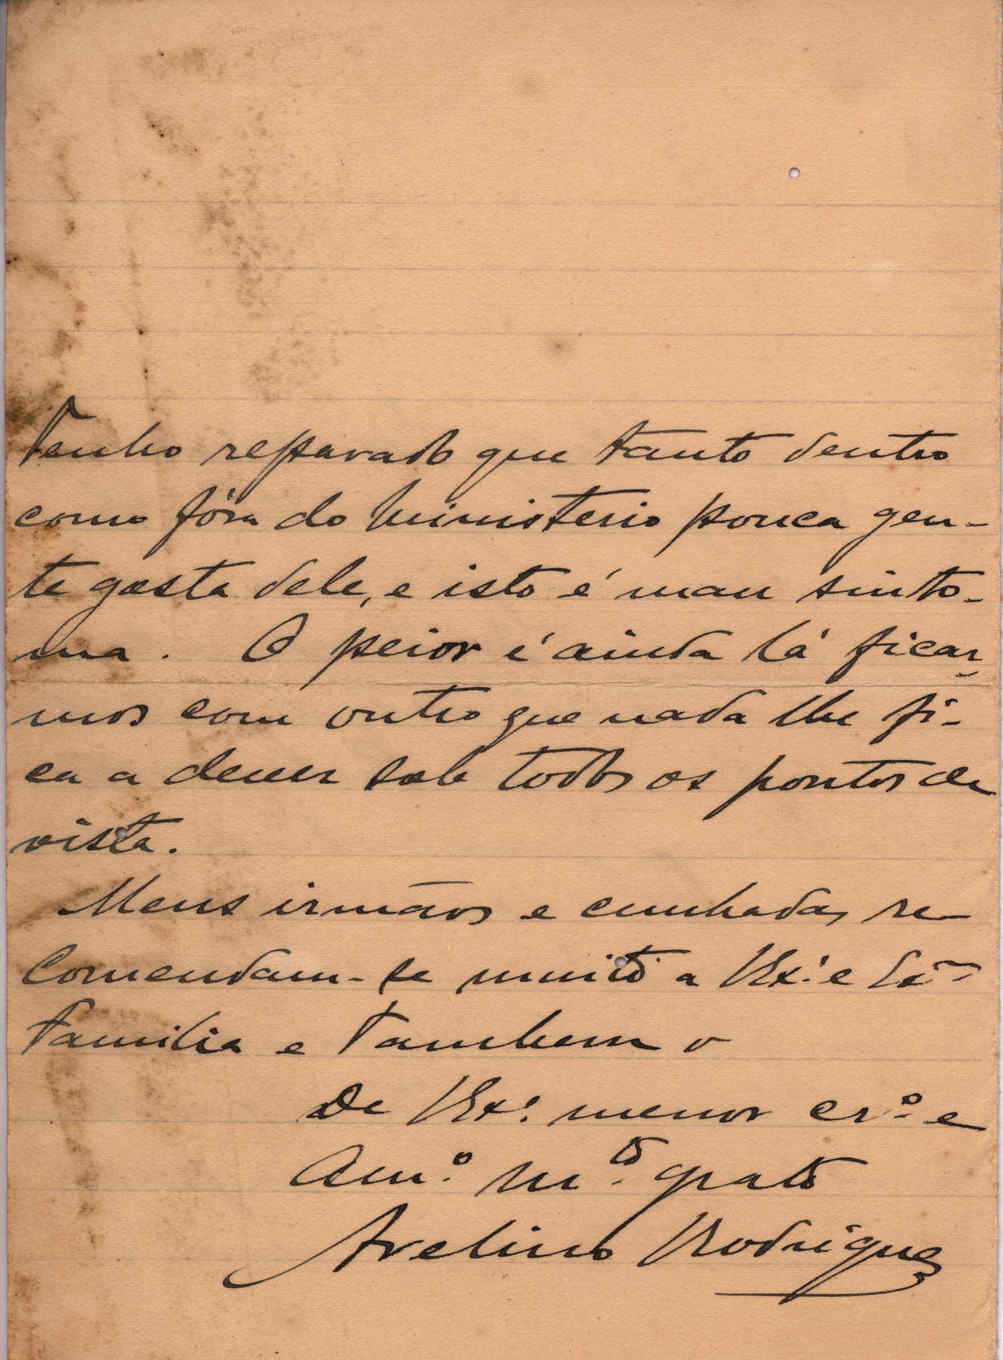 Tenho reparado que tanto dentro
como fóra do Ministerio pouca gen-
te gosta dele, e isto é mau sinto-
ma. O peior é ainda lá ficar-
mos com outro que nada lhe fi-
ca a dever sob todos os pontos de
vista.
Meus irmãos e cunhadas re-
comendam-se muito a VExª e Exmª
familia e tambem o
De VExª menor crº e
Amº Mtº grato
Avelino Rodrigues